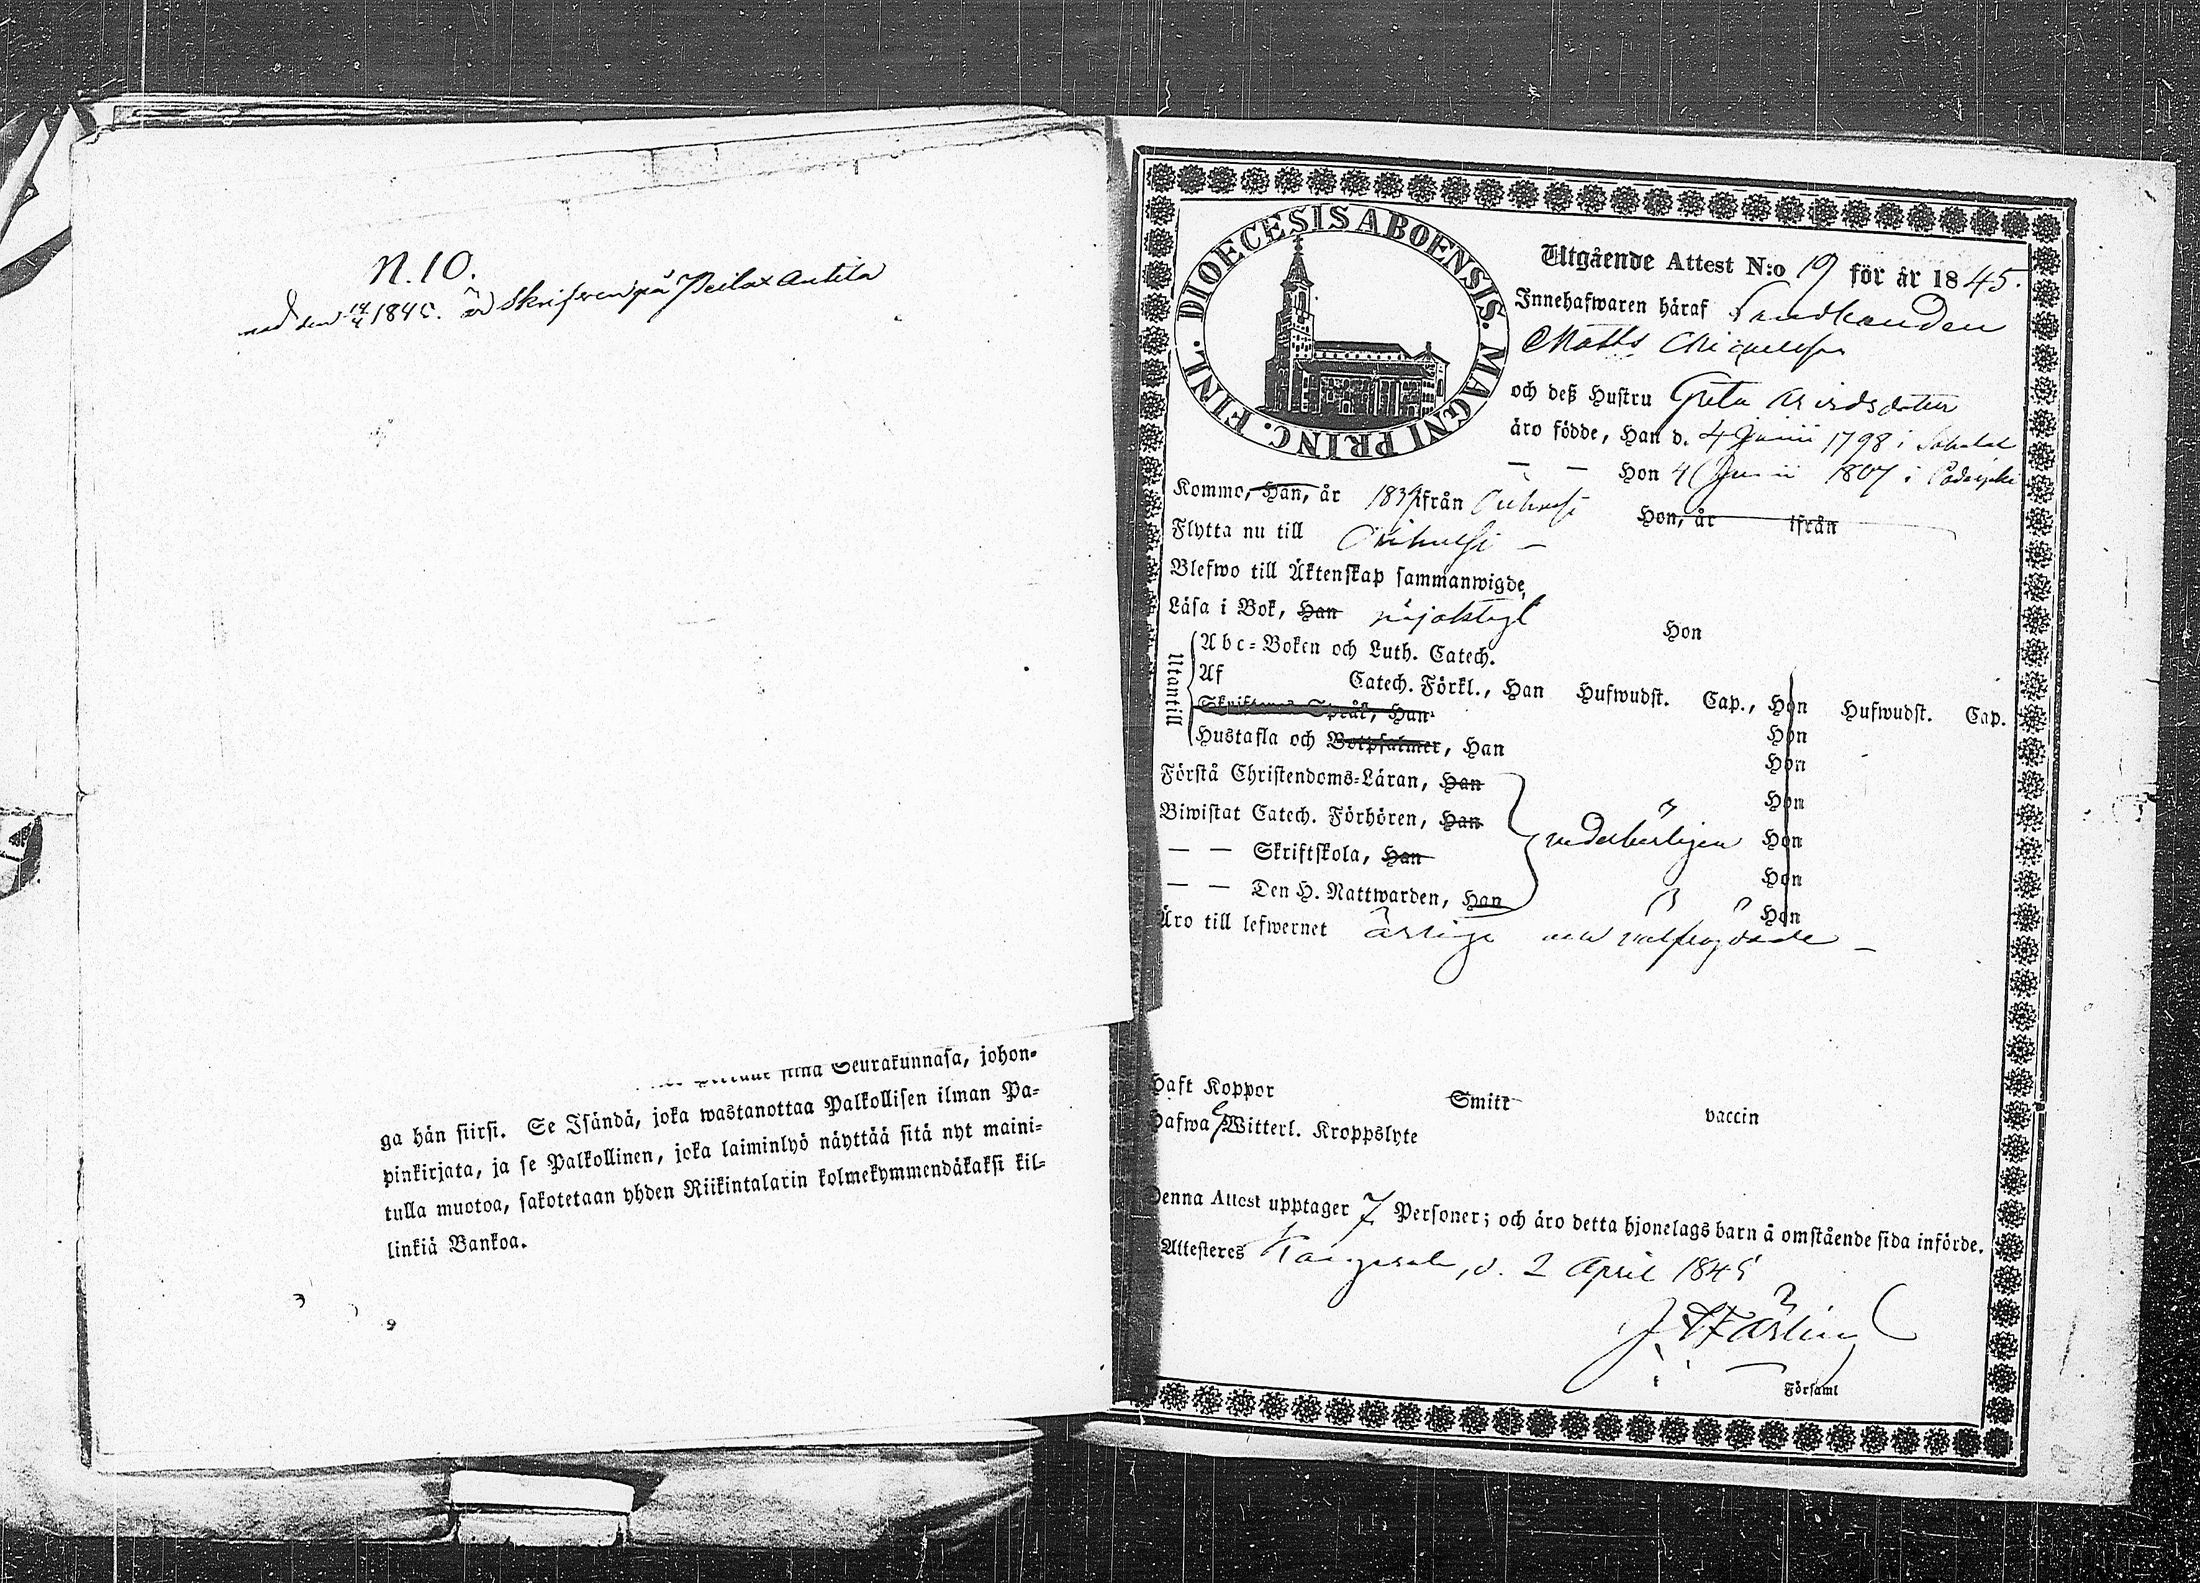 N. 10.
den 14/4 1845. är Skrifven på Peilax Antila
Seurakunnasa, johon-
ga hän siirsi. Se Isändä, joka wastanottaa Palkollisen ilman Pa-
pinkirjata, ja se Palkollinen, joka laiminlyö näyttää sitä nyt maini-
tulla muotoa, sakotetaan yhden Riikintalarin kolmekymmendäkaksi kil-
linkiä Bankoa.
DIOECESIS ABOENSIS. MAGNI PRINC. FINL.
Utgående Attest N:o 19 för år 1845.
Innehafwaren häraf Landbonden
Matts Michelsson
och deß Hustru Greta Arvidsdotter
äro födde, Han d. 4 Junii 1798 i
— — Hon 4 Junii 1807 i Padasjoki
Kommo, Han, år 1839 ifrån Orihvesi Hon, år ifrån
Flytta nu till Orihvesi —
Blefwo till Äktenskap sammanwigde,
Läsa i Bok, Han nöjaktigt Hon
Utantill
Abc-Boken och Luth. Catech.
Af Catech. Förkl., Han Hufwudst. Cap., Hon Hufwudst. Cap.
Skriftenes Språk, Han Hon
Hustafla och Botpsalmer, Han Hon
Förstå Christendoms-Läran, Han Hon
Biwistat Catech. Förhören, Han vederbörligen Hon
— — Skriftskola, Han Hon
— — Den H. Nattwarden, Han Hon
Äro till lefwernet ärliga och välfrejdade —
Haft Koppor Smitt vaccin
Hafwa Ej Witterl. Kroppslyte
Denna Attest upptager 7 Personer; och äro detta hjonelags barn å omstående sida införde.
Attesteres Kangasala, d. 2 April 1845
Församl